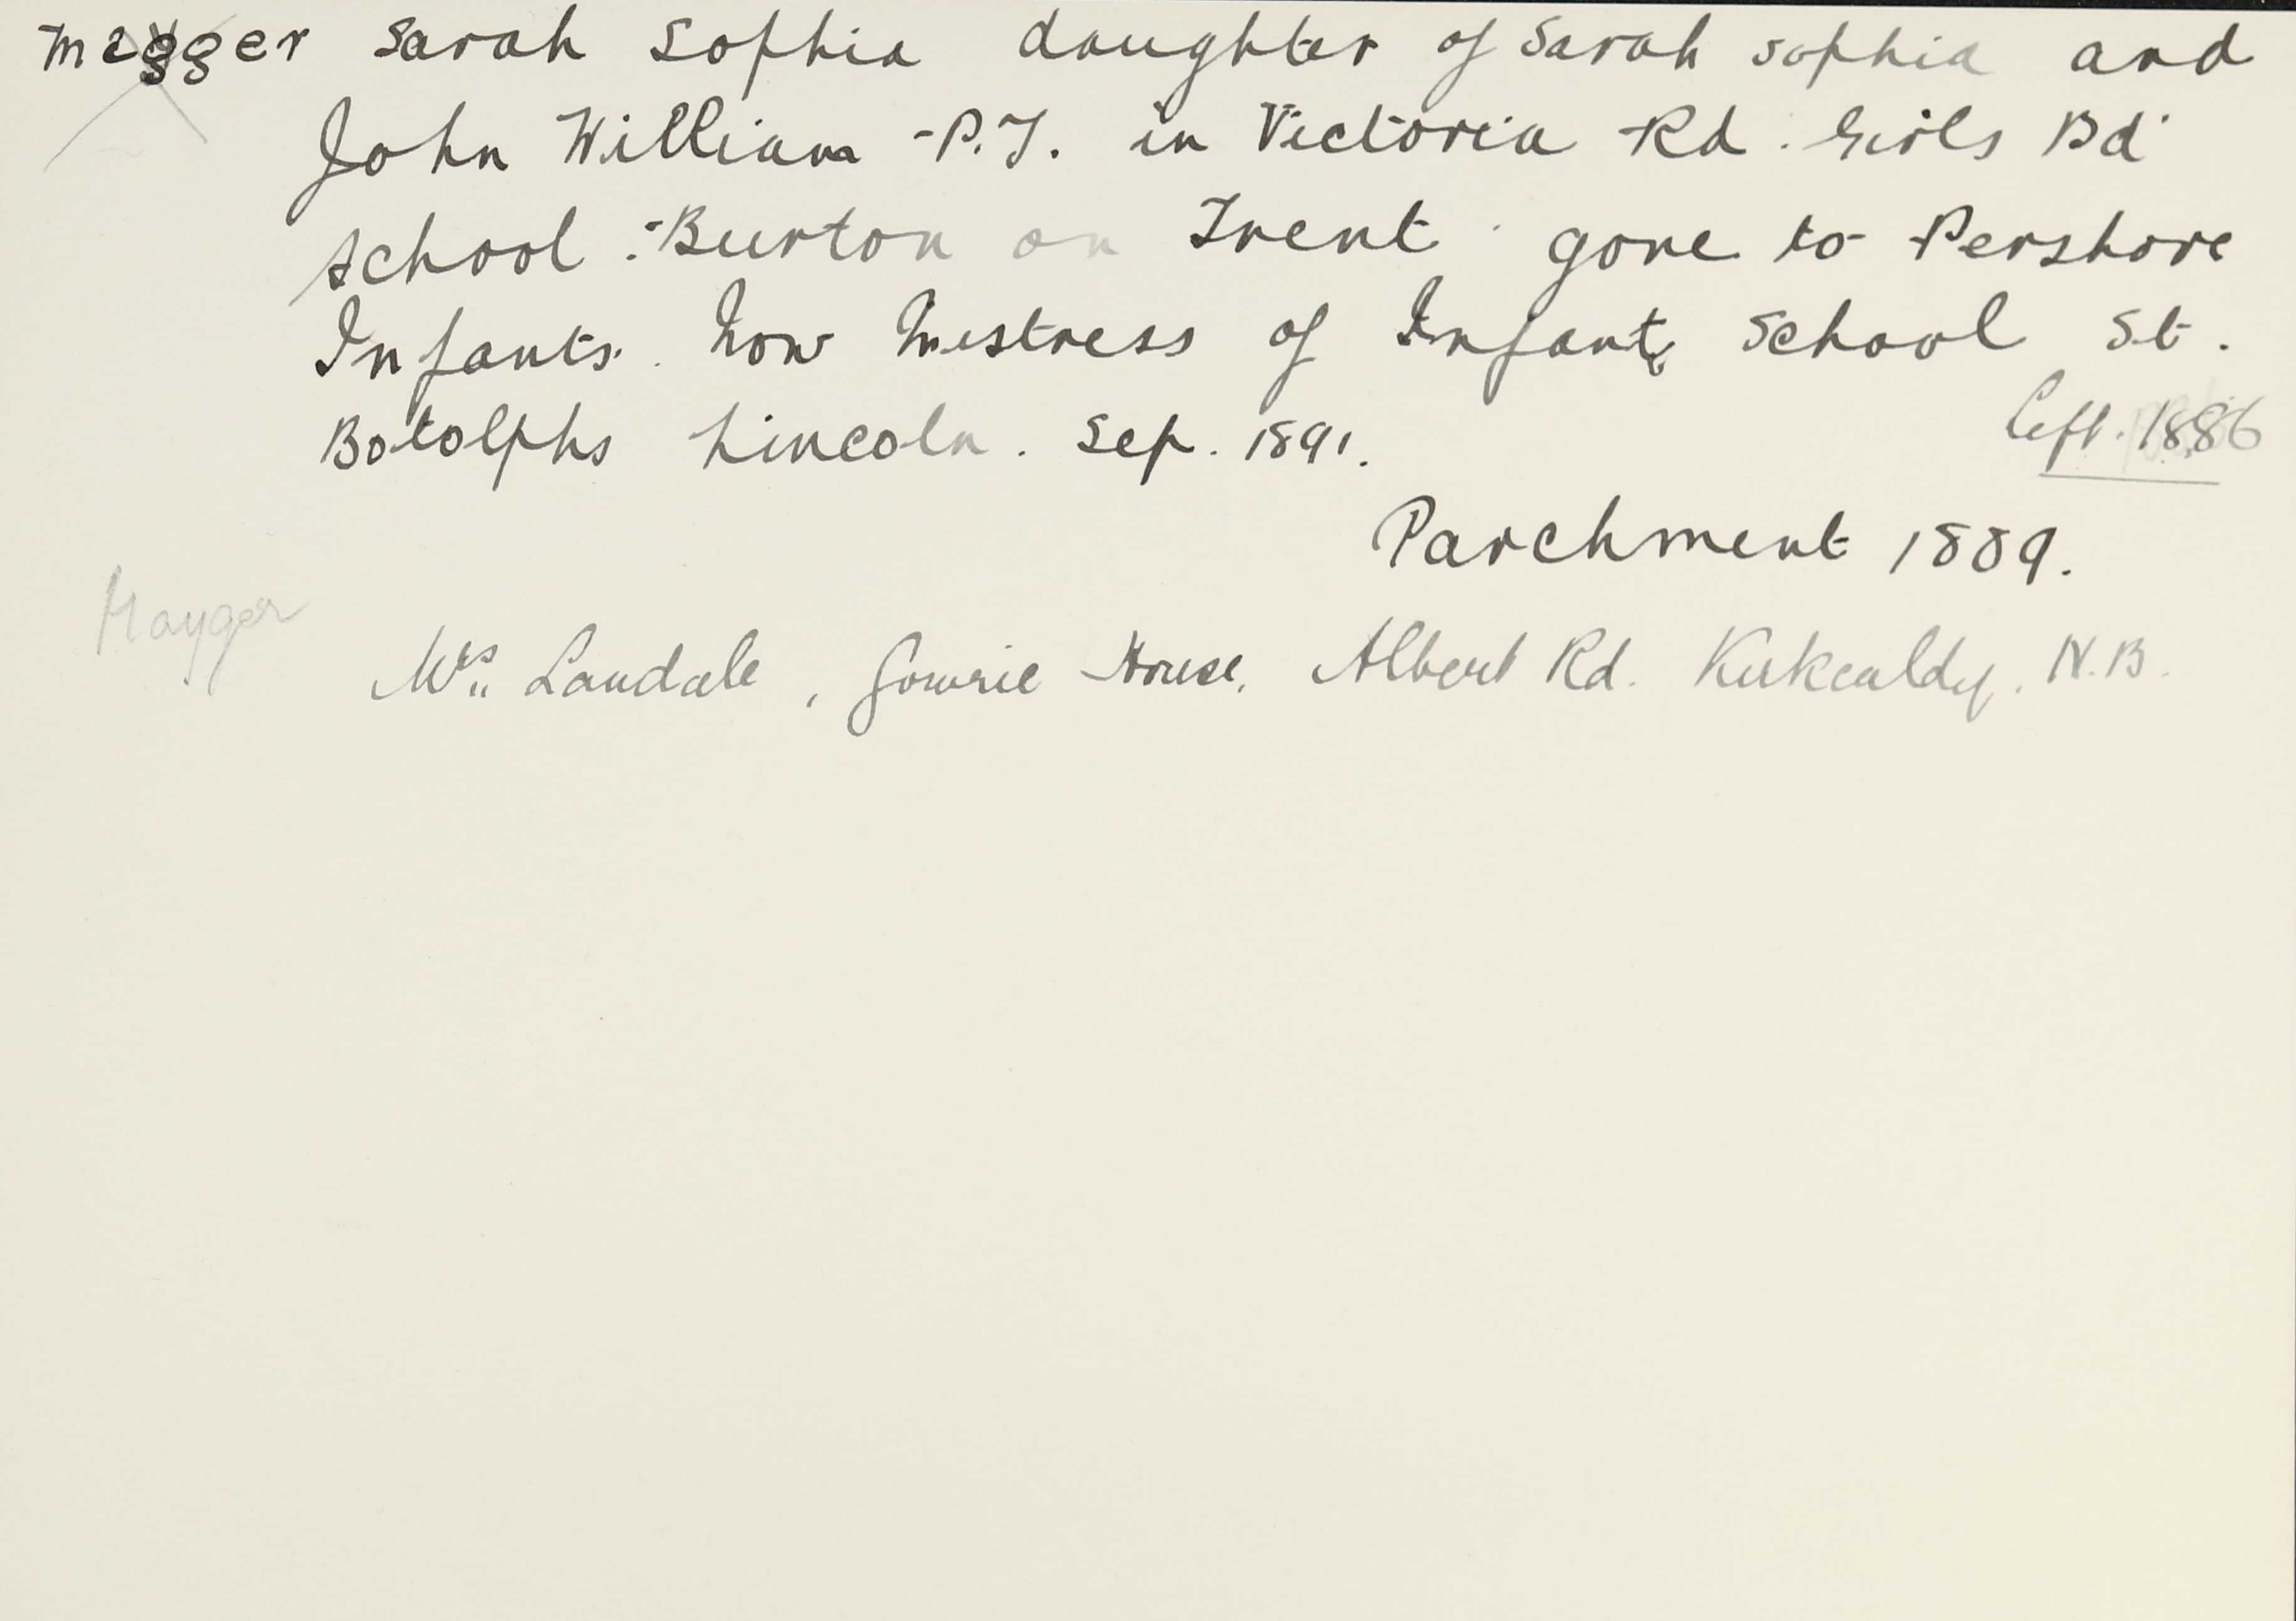 Megger Sarah Sophia daughter of Sarah Sophia and
John William - P.T. in Victoria Rd. Girls Bd
School. - Burton on Trent. gone to Pershore
Infants. Now Mistress of Infants School St.
Botolphs Lincoln. Sep. 1891.
left. 1886
Parchment 1889.
Mayger
Mrs. Landale, Gowrie House, Albert Rd. Kirkcaldy. N.B.